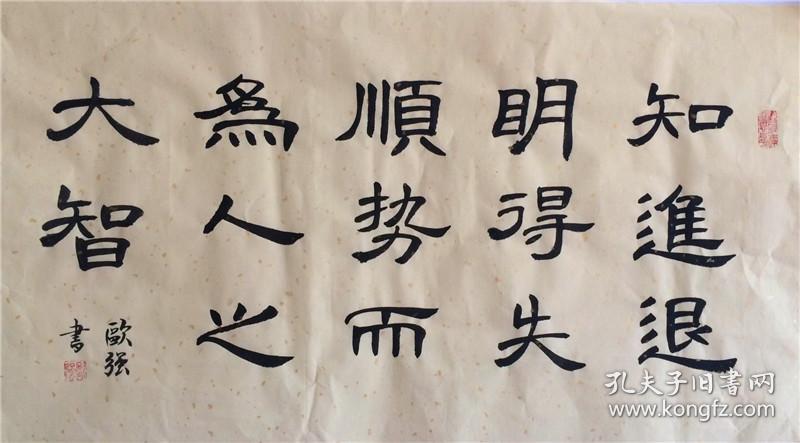 知進退
明得失
順势而
為人之
大智
歐强
書
孔夫子旧書网
www.kongfz.com